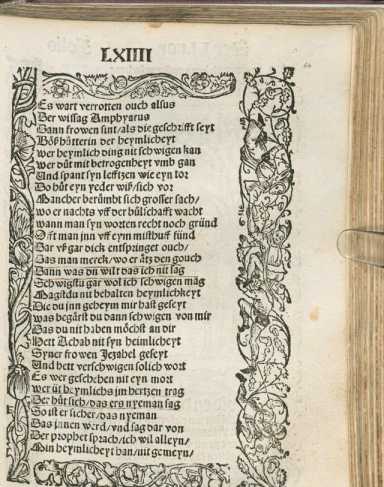 LXIIII
Es wart verrotten ouch alsus
Der wissag Amphyarus
Dann frowen sint/als die geschrifft seyt
Bösz hütterin der heymlicheyt
wer heymlich ding nit schwigen kan
wer důt mit betrogenheyt vmb gan
Und spant syn lefftzen wie eyn tor
Do hůt eyn yeder wisz/sich vor
Mancher berůmbt sich grosser sach/
wo er nachts vff der bůlschafft wacht
wann man syn worten recht noch gründ
Offt man jnn vff eym misthuff fünd
Dar vsz gar dick entspringet ouch/
Das man merck/wo er åtz den gouch
Dann was du wilt das ich nit sag
Schwigstu gar wol ich schwigen mäg
Magstdu nit behalten heymlichkeyt
Die du jnn geheym mir hast geseyt
was begärst du dann schwigen von mir
Das du nit haben möchst an dir
Hett Achab nit syn heimlicheyt
Syner frowen Jezabel geseyt
Und hett verschwigen solich wort
Es wer geschehen nit eyn mort
wer üt heymlichs jm hertzen trag
Der hüt sich/das ers nyeman sag
So ist er sicher/das nyeman
Das jnnen werd/vnd sag dar von
Der prophet sprach/ich wil alleyn/
Min heymlicheyt han/nit gemeyn/